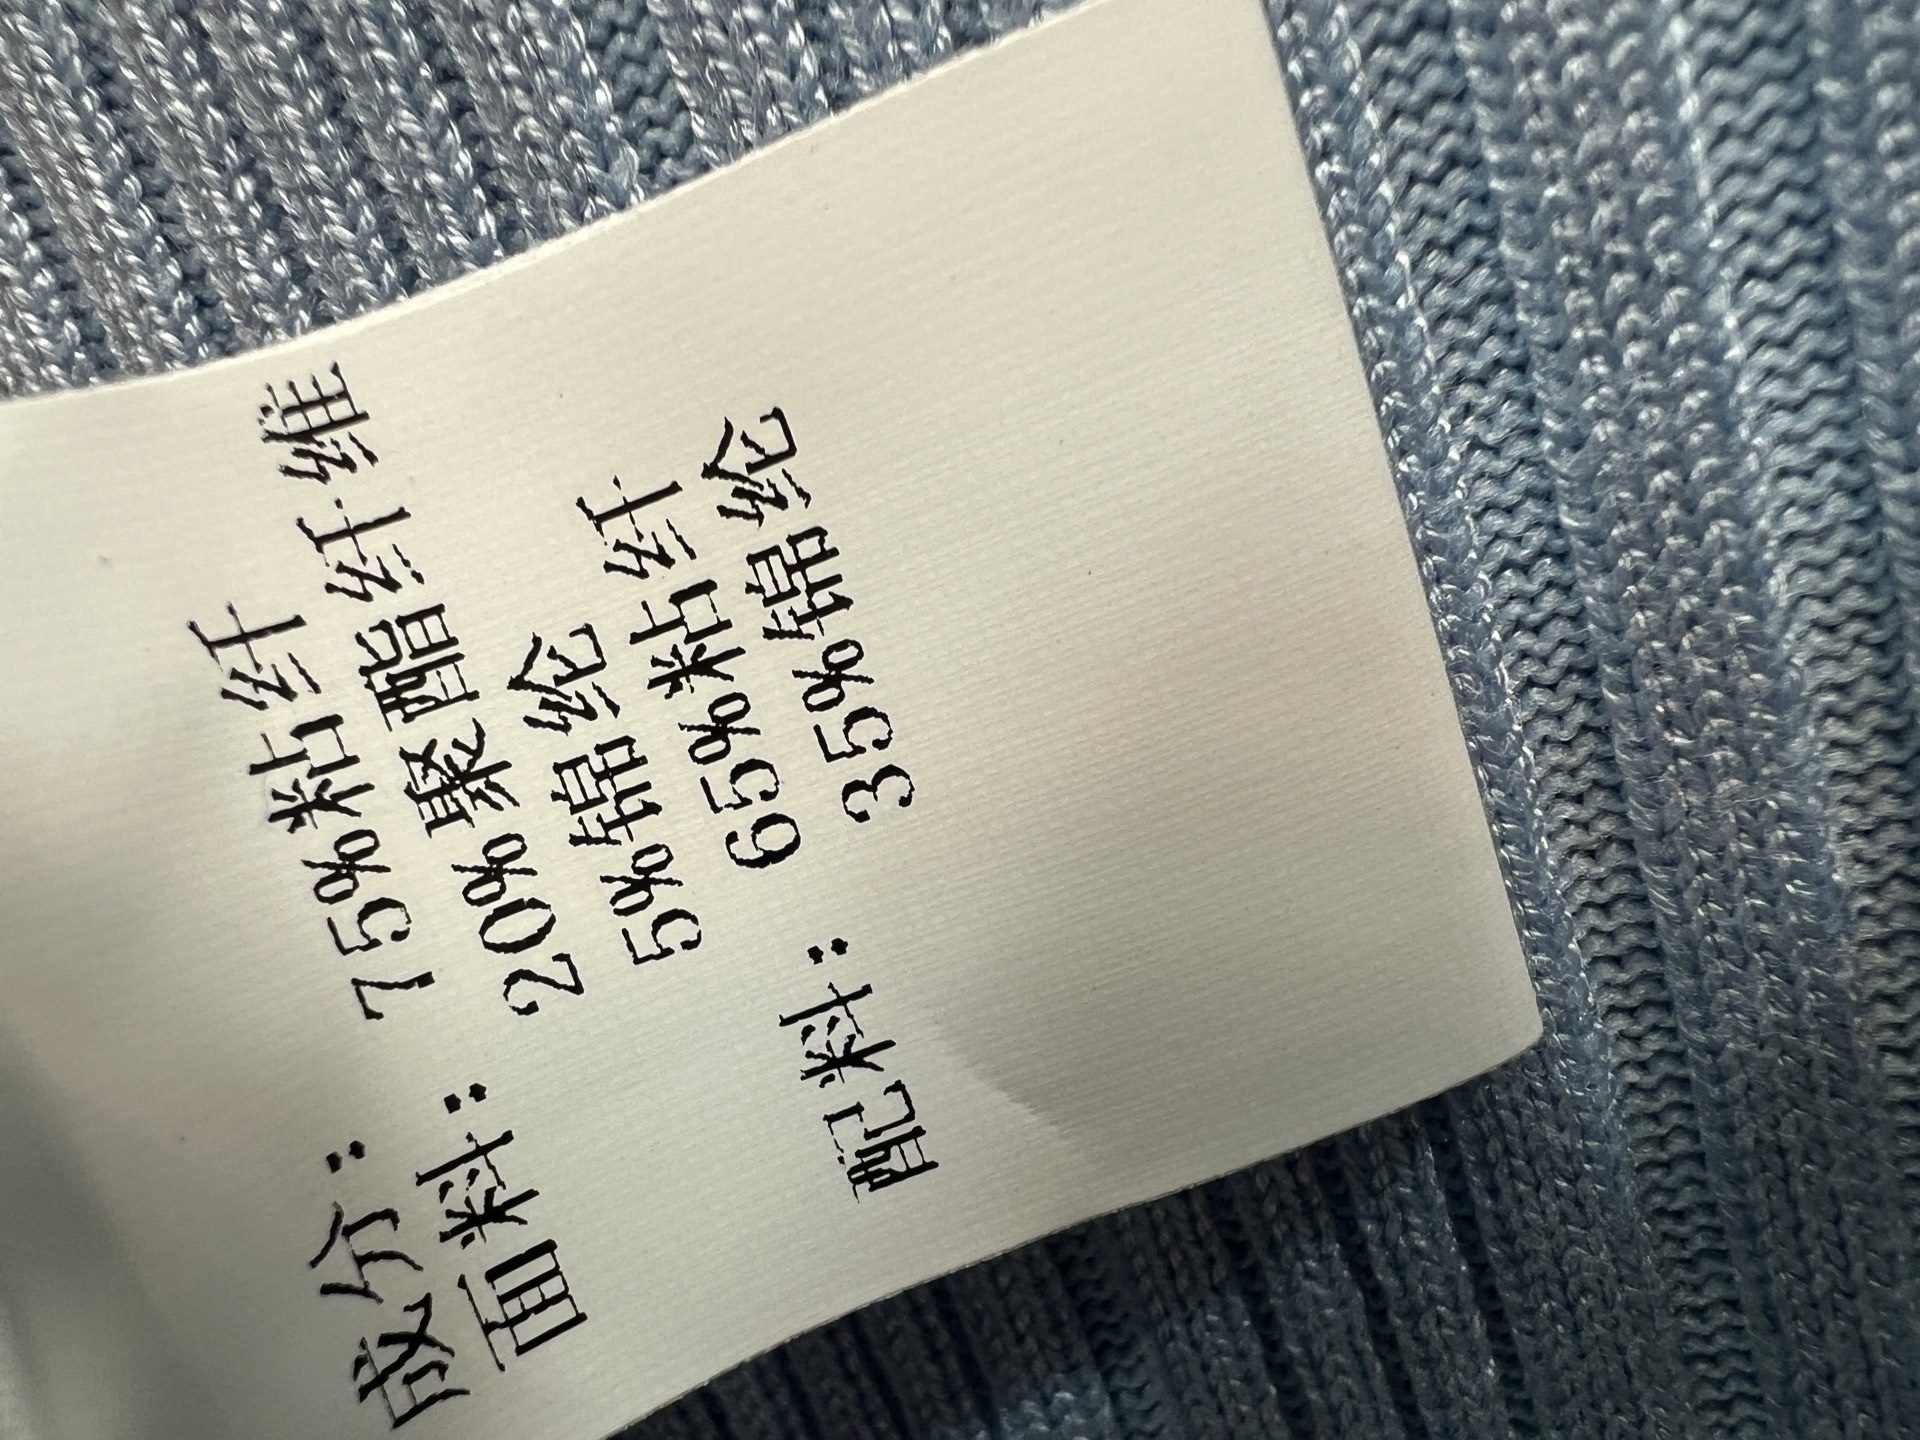 成分：
面料：75%粘纤
20%聚酯纤维
5%锦纶
配料：65%粘纤
35%锦纶